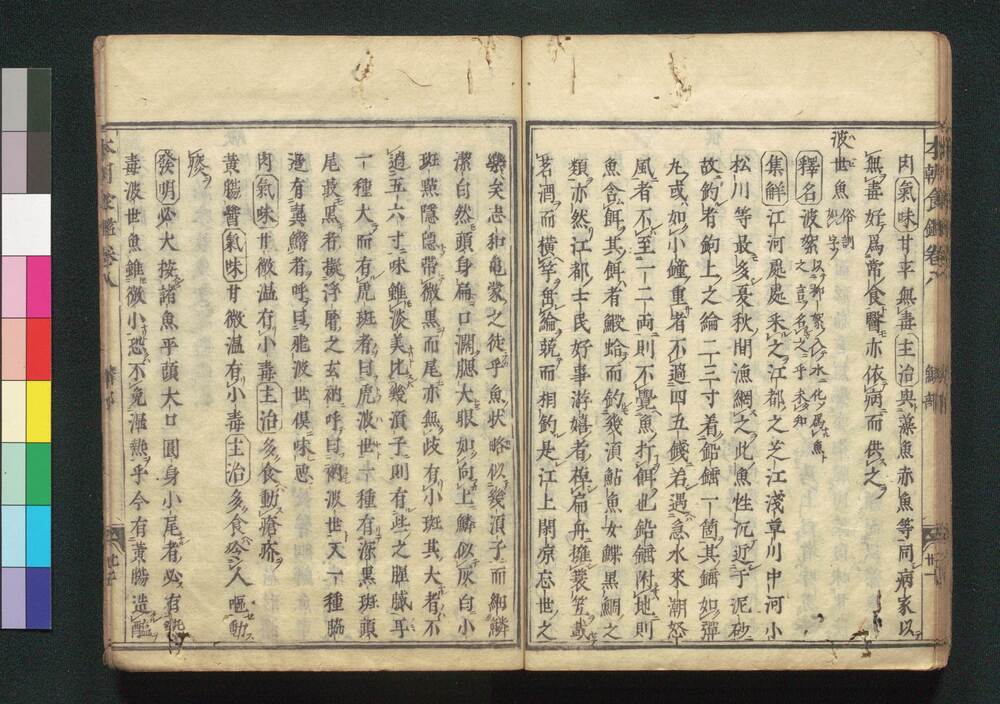 本朝食鑑卷八
肉氣味甘平無毒主治與藻魚赤魚等同病家以
無毒好爲常食醫亦依病而供之
波世魚
釋名波
集鮮江河處處釆之江都之芝江淺草川中河小
松川等最多夏秋間漁網之此魚性沉近于泥砂
故釣者鉤上之綸二三寸着鉛鐺一箇其鐺如彈
丸或如小鐘重者不過四五錢若遇急水來潮怒
風者不至一二両則不覺魚打餌也鉛鐺附地則
魚含餌其餌者蝦蛤而釣幾湏鮎魚女鰈黑鯛之
類亦然江都士民好事游嬉者棹扁舟擁蓑笠載
茗酒而橫竿垂綸競而相釣是江上閑凉忘世之
樂矣志和龜蒙之徒乎魚狀略似幾湏子而細鱗
潔白然頭身扁口濶腮大眼如向上鱗似灰白小
斑點隱隱帶微黑而尾亦無歧有小斑其大者不
過五六寸味雖淡美比幾湏子則有些之腥臓乎
一種大而有虎斑者曰虎波世一種有深黑斑頭
尾最黑者擬浮屠之玄衲呼曰衲波世又一種脇
邊有糞鰭者呼曰飛波世俱味惡
肉氣味甘微温有小毒主治多食動瘡疥
黄腸醬氣味甘微温有小毒主治多食令人嘔動
痰
發明必大按諸魚平頭大口圓身小尾者必有
毒波世魚雖微小恐不免濕熱乎今有黄腸造醢